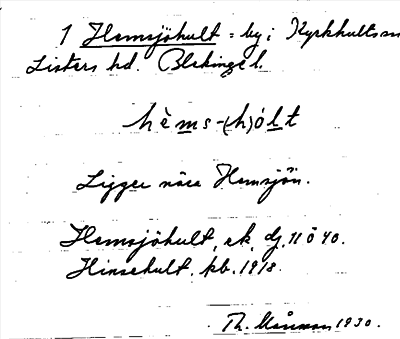 1 Hemsjöhult = by i Kyrkhults sn
Listers hd. Blekinge l.
hèms-(h)ólt
Ligger nära Hemsjön.
Hemsjöhult, ek. dj. 11 Ö 40.
Hinsehult, kb. 1918.
Th. 1930.